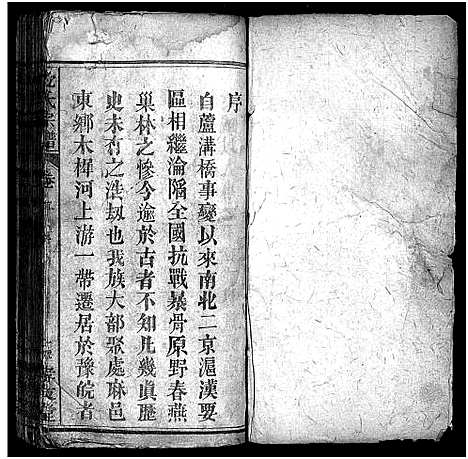 序
自蘆溝橋事變以來南北二京滬漢要
區相繼淪陷全國抗戰暴骨原野春燕
巢林之慘今逾於古者不知凡幾眞歷
史未有之浩刼也我族大部聚處麻邑
東鄉木梓河上游一帶遷居於豫皖者
氏宗譜
卷